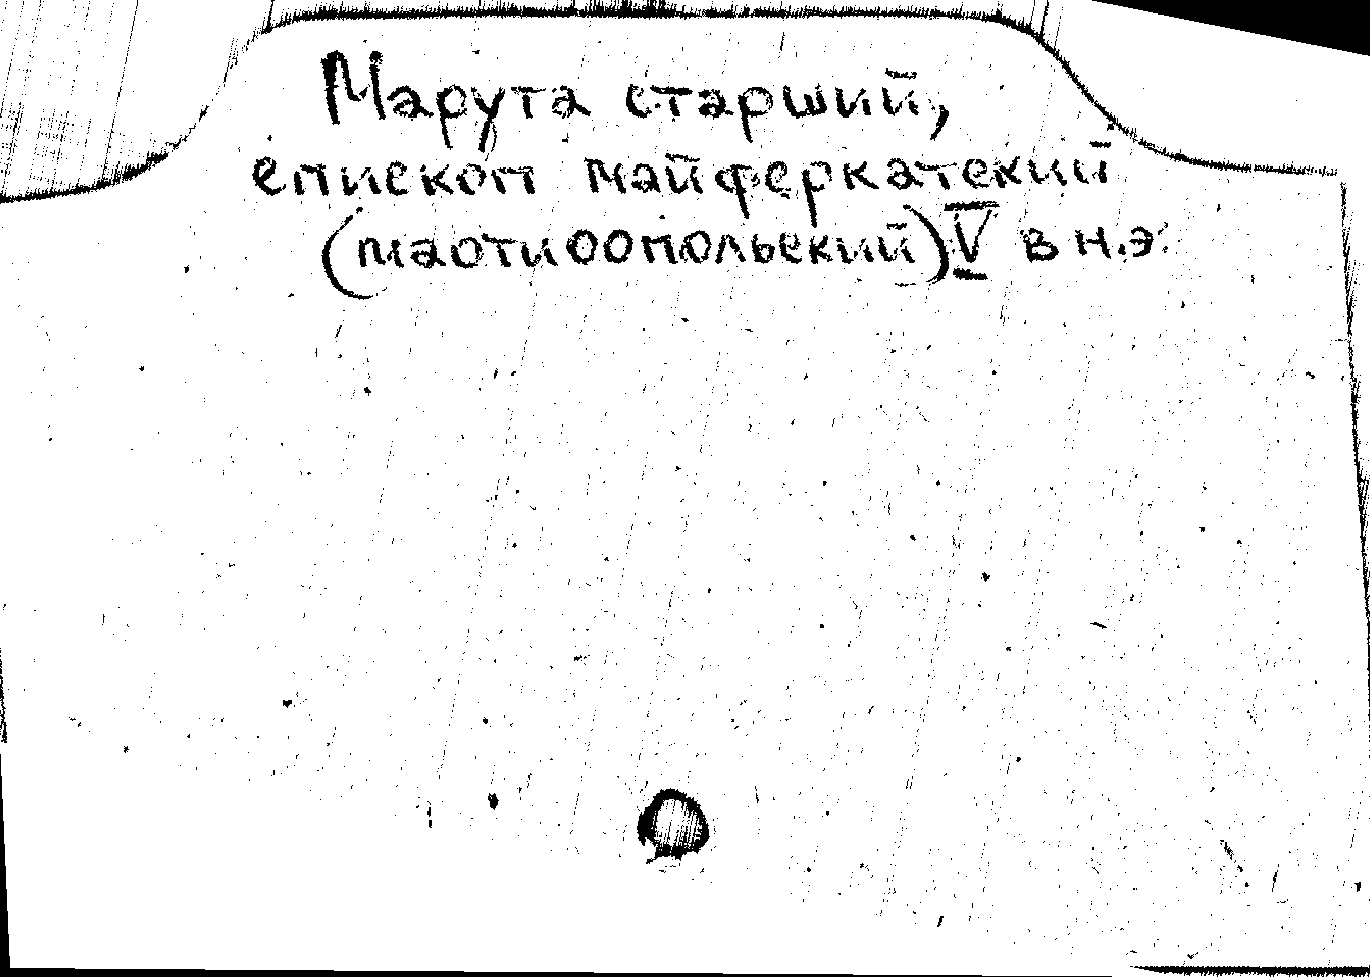 Марута старший,
епископ майферкатский
(мартиропольский) V в н.э.